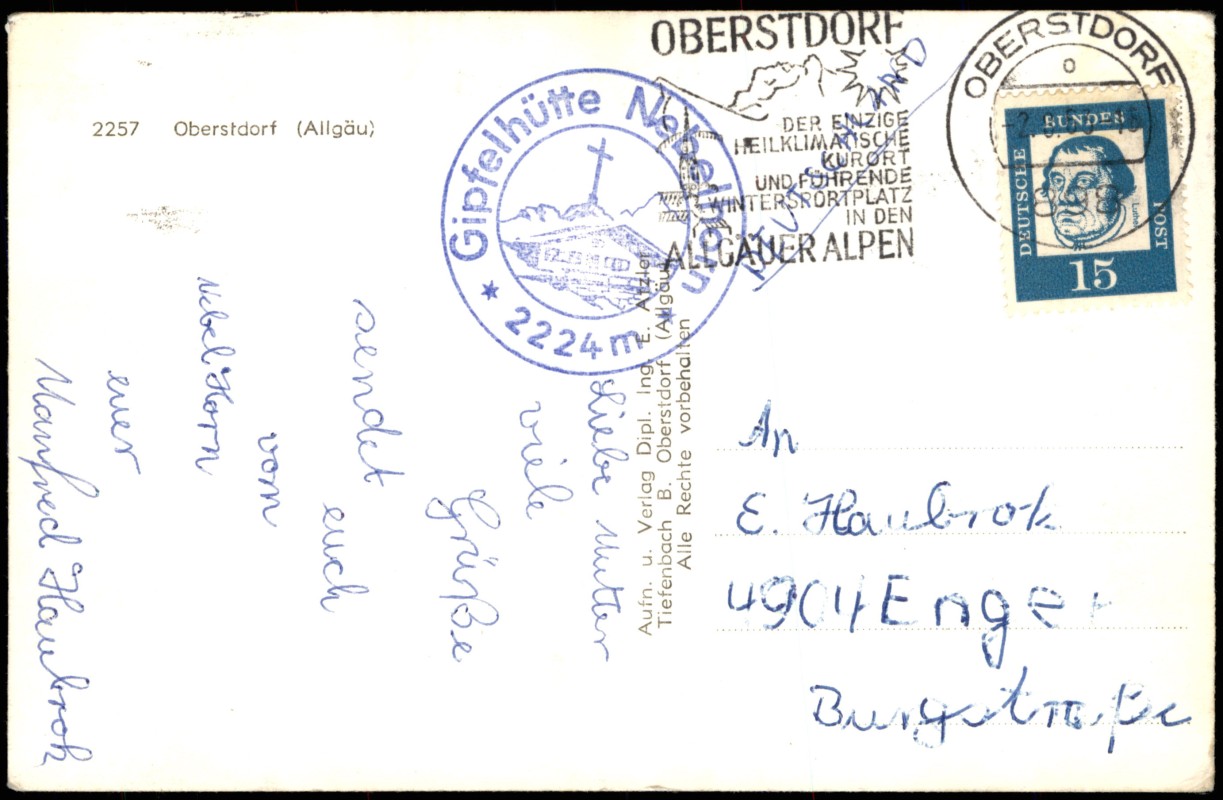 2257 Oberstdorf (Allgäu)
Gipfelhütte Nebelhorn
* 2224 m *
OBERSTDORF
DER EINZIGE
HEILKLIMATISCHE
KURORT
UND FÜHRENDE
WINTERSPORTPLATZ
IN DEN
ALLGÄUER ALPEN
DEUTSCHLAND
OBERSTDORF
o
898
DEUTSCHE
BUNDES
POST
Luther
15
Aufn. u. Verlag Dipl. Ing. E. Atzler
Tiefenbach B. Oberstdorf (Allgäu)
Alle Rechte vorbehalten
Liebe Mutter
viele
Grüße
sendet
euch
vom
Nebelhorn
euer
Manfred Haubrok
An
E. Haubrok
4904 Enger
Burgstraße